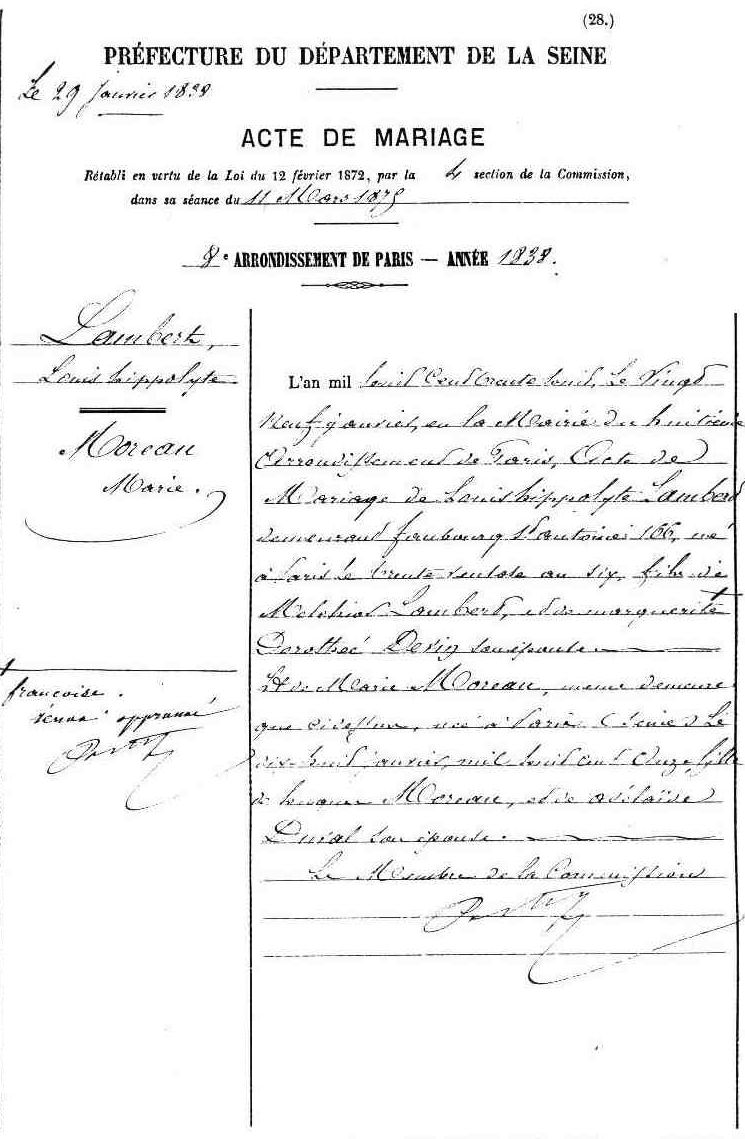 (28.)
PRÉFECTURE DU DÉPARTEMENT DE LA SEINE
Le 29 janvier 1838
ACTE DE MARIAGE
Rétabli en vertu de la Loi du 12 février 1872, par la 4 section de la Commission,
dans sa séance du 11 Mars 1875
8e ARRONDISSEMENT DE PARIS — ANNÉE 1838.
Lambert,
Louis hippolyte
Moreau
Marie.
L'an mil huit cent trente huit, Le Vingt
neuf janvier, en la Mairie du huitième
Arrondissement de Paris, Acte de
Mariage de Louis hippolyte Lambert
demeurant faubourg St antoine 166, né
à Paris le trente ventose an six, fils de
Melchior Lambert, et de marguerite +
Dorothée Devin son épouse
Et de Marie Moreau, meme demeure
que , née à Paris (Seine) Le
dix huit janvier, mil huit cent Onze fille
de Moreau, et de adélaïde
Duval son épouse.
Le Membre de la Commission
+
francoise.
renvoi approuvé